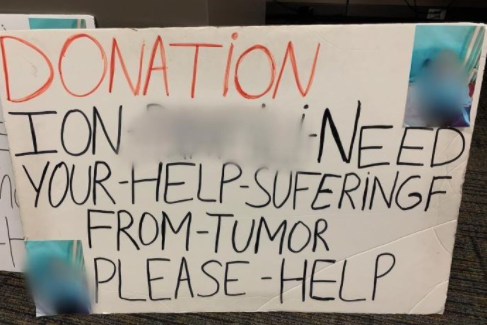 DONATiON
ION -NEED
YOUR-HELP-SUFERiNGF
FROM-TUMOR
PLEASE-HELP